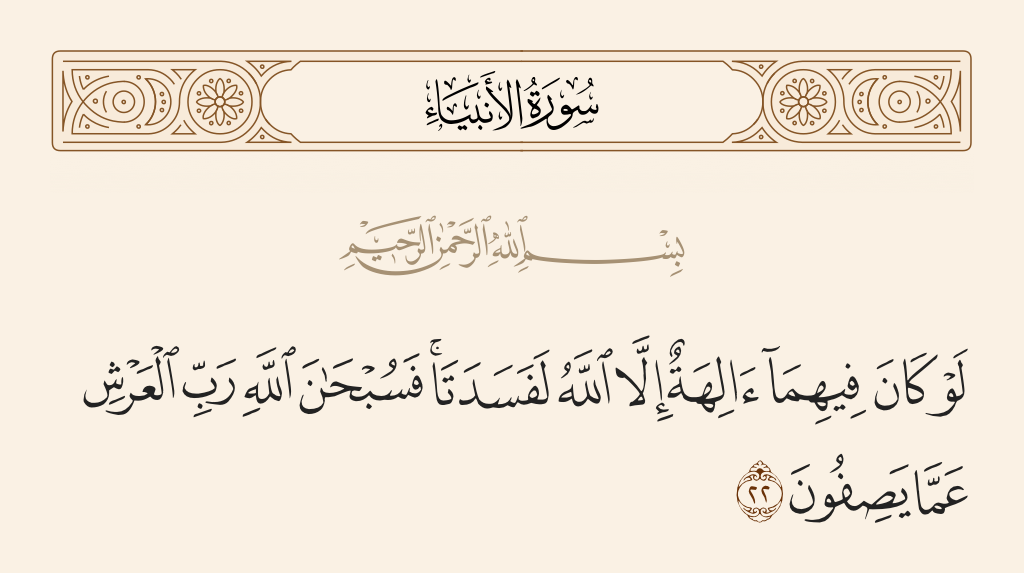 سُورَةُ الأَنبِيَاءِ
بِسْمِ ٱللَّهِ ٱلرَّحْمَٰنِ ٱلرَّحِيمِ
لَوْ كَانَ فِيهِمَآ ءَالِهَةٌ إِلَّا ٱللَّهُ لَفَسَدَتَا ۚ فَسُبْحَٰنَ ٱللَّهِ رَبِّ ٱلْعَرْشِ
عَمَّا يَصِفُونَ ٢٢